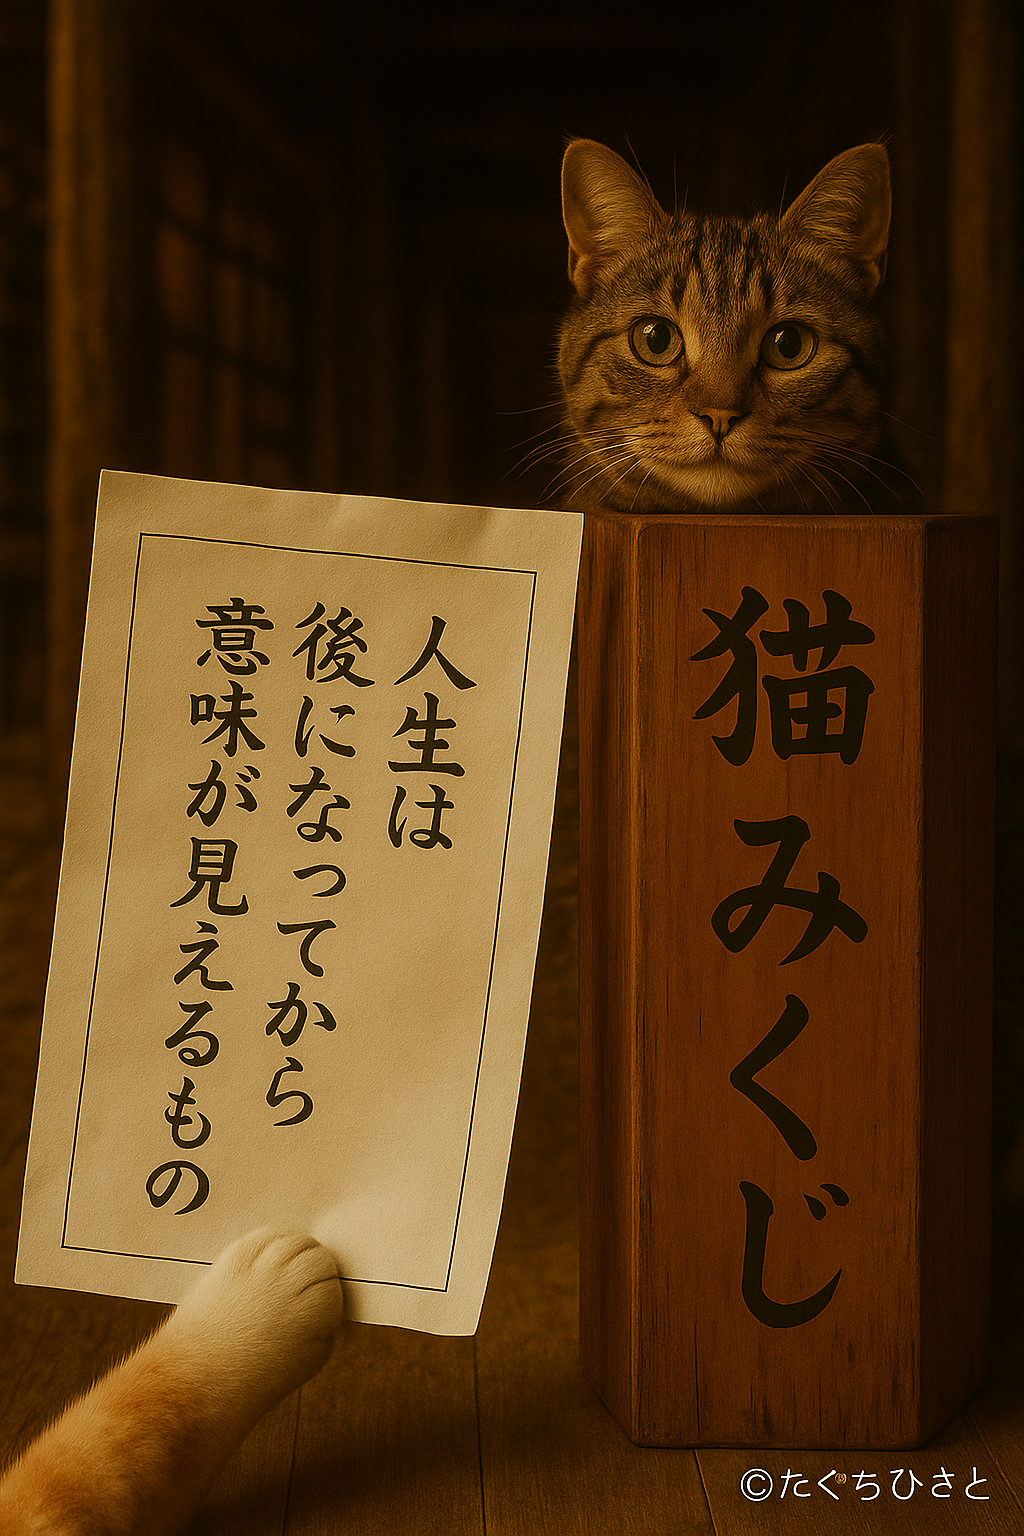 人生は
後になってから
意味が見えるもの
猫みくじ
©たぐちひさと